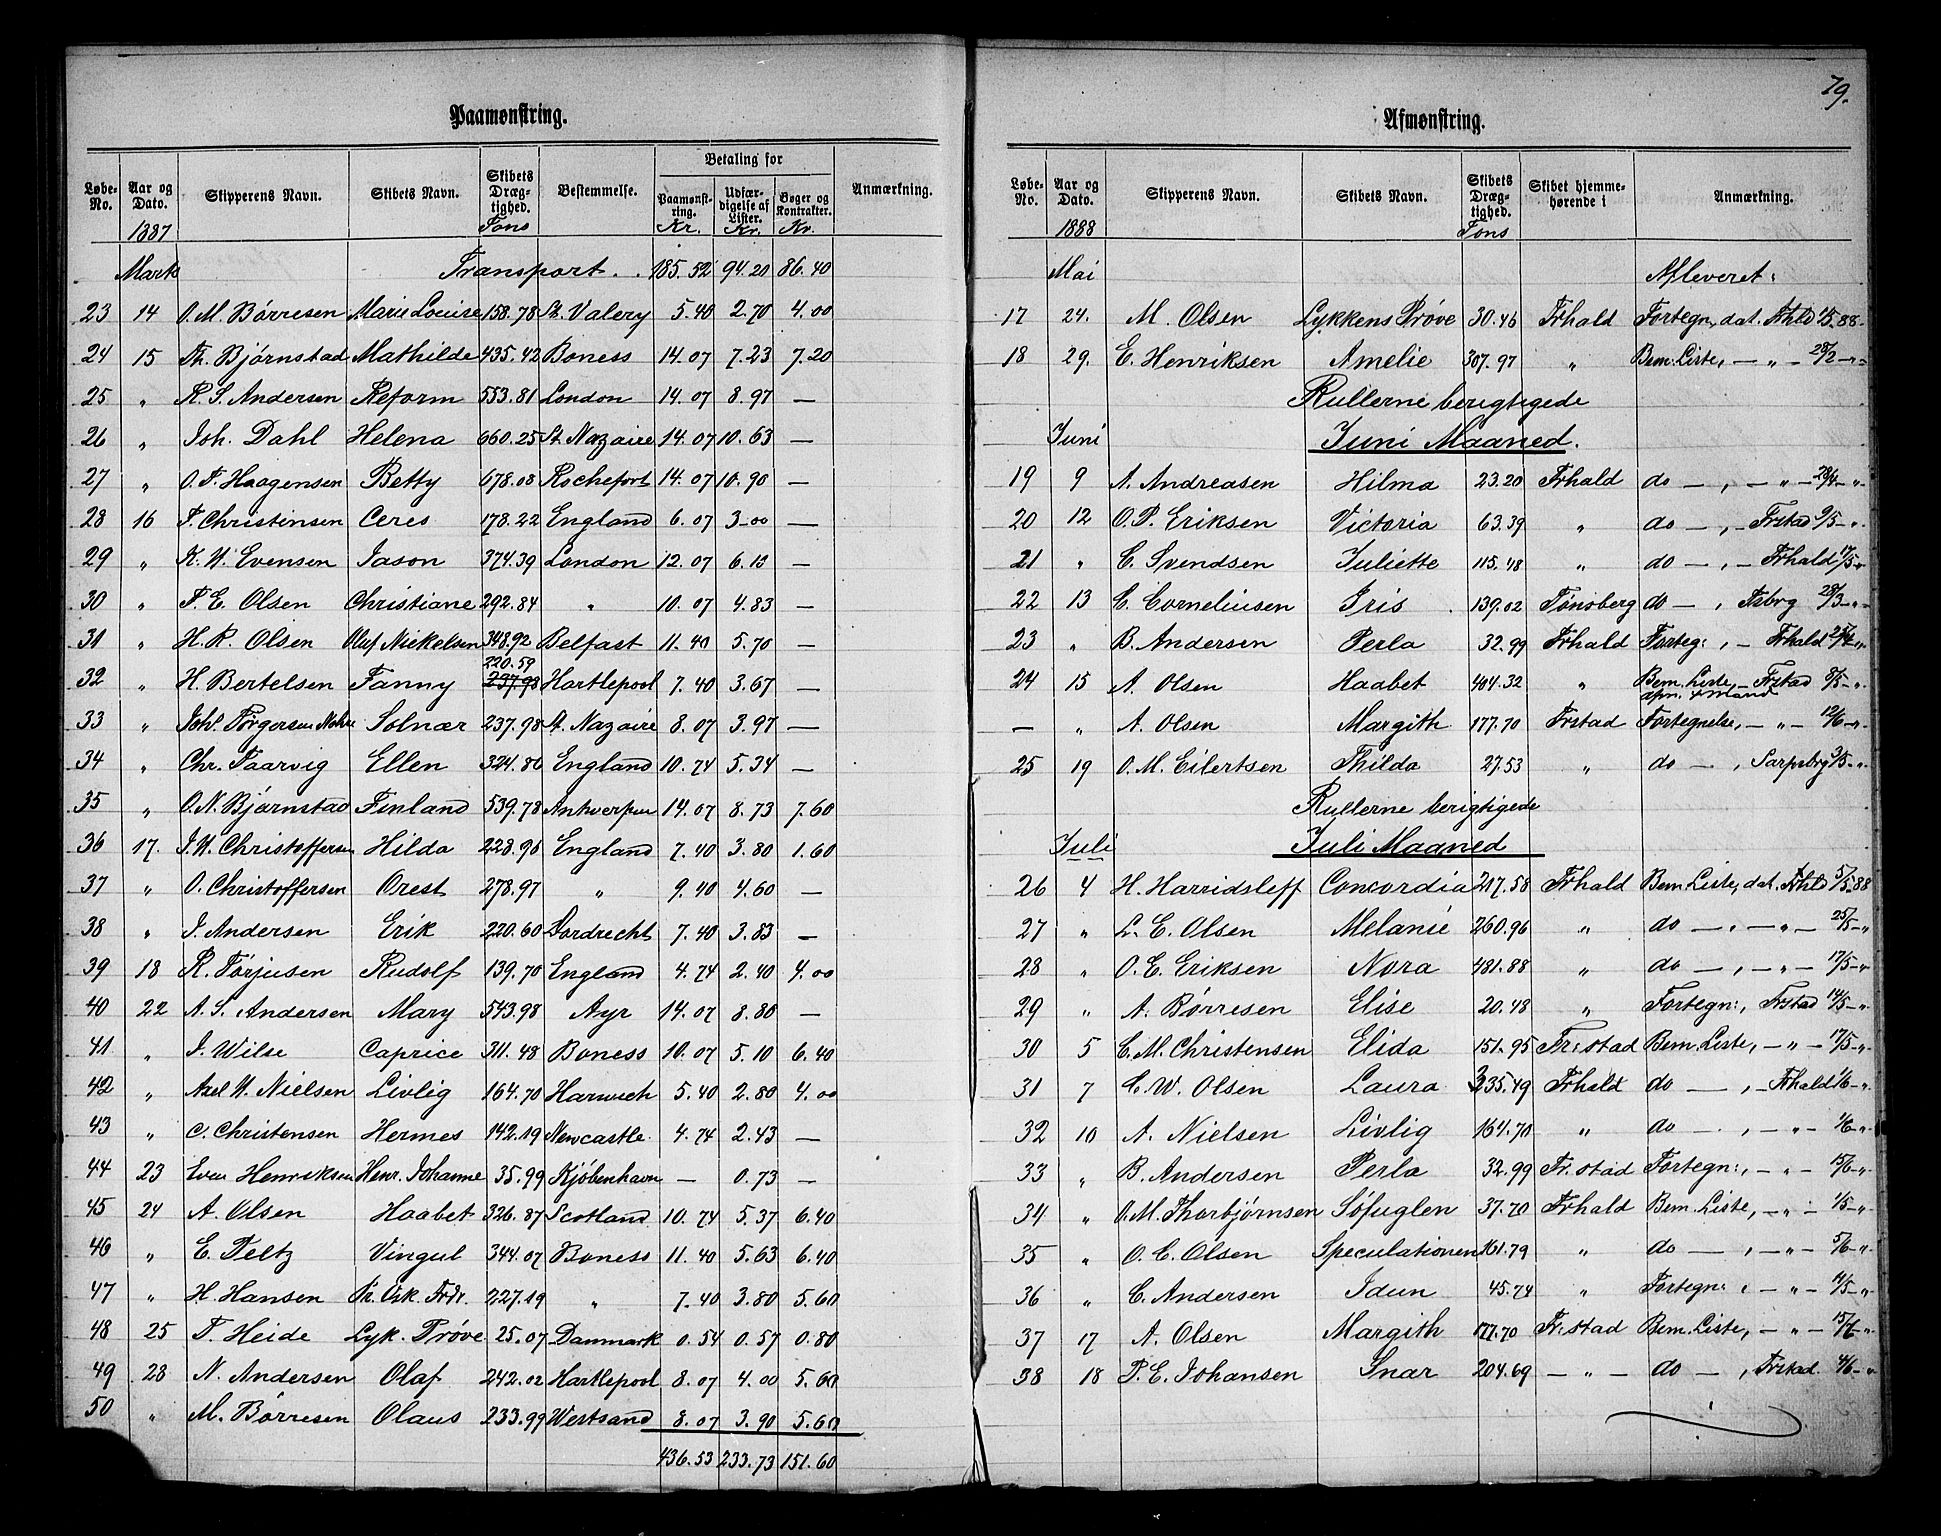 79.
Paamønstring.
Løbe-No. Aar og Dato. Skipperens Navn. Skibets Navn. Skibets Dræg-tighed. Bestemmelse. Betaling for Paamønst-ring. Udfær-digelse af Lister. Bøger og Kontrakter. Anmærkning.
1887 Tons Kr. Kr. Kr.
Marts Transport . . 185.52 94.20 86.40
23 14 O. M. Børresen Marie Louise 158.78 St. Valery 5.40 2.70 4.00
24 15 Th. Bjørnstad Mathilde 435.42 Boness 14.07 7.23 7.20
25 " R. S. Andersen Reform 553.81 London 14.07 8.97 —
26 " Joh. Dahl Helena 660.25 St. Nazaire 14.07 10.63 —
27 " O. F. Haagensen Betty 678.08 Rochefort 14.07 10.90 —
28 16 F. Christensen Ceres 178.22 England 6.07 3.00 —
29 " K. W. Evensen Jason 374.39 London 12.07 6.10 —
30 " F. E. Olsen Christiane 292.84 " 10.07 4.83 —
31 " H. P. Olsen Oluf Nickelsen 348.92 Belfast 11.40 5.70 —
220.59
32 " H. Bertelsen Fanny 237.98 Hartlepool 7.40 3.67 —
33 " Johl. Torgersen Solnær 237.98 St. Nazaire 8.07 3.97 —
34 " Chr. Faarvig Ellen 324.86 England 10.74 5.34 —
35 " O. N. Bjørnstad Finland 539.78 Antwerpen 14.07 8.73 7.60
36 17. J. W. Christoffersen Hilda 228.96 England 7.40 3.80 1.60
37 " O. Christoffersen Orest 278.97 " 9.40 4.60 —
38 " J. Andersen Erik 220.60 Dordrecht 7.40 3.83 —
39 18 R. Tørjusen Rudolf 139.70 England 4.74 2.40 4.00
40 22 A. S. Andersen Mary 543.98 Ayr 14.07 8.80 —
41 " J. Wilse Caprice 311.48 Boness 10.07 5.10 6.40
42 " Axel W. Nielsen Livlig 164.70 Harwich 5.40 2.80 4.00
43 " C. Christensen Hermes 142.19 Newcastle 4.74 2.43 —
44 23 Even Henriksen Henr. Johanne 35.99 Kjøbenhavn — 0.73 —
45 24 A. Olsen Haabet 326.87 Scotland 10.74 5.37 6.40
46 " E. Peltz Vingul 344.07 Boness 11.40 5.63 6.40
47 " H. Hansen Pr. Osk. Frdr. 227.19 " 7.40 3.80 5.60
48 25 T. Heide Lyk. Prøve 25.07 Danmark 0.54 0.57 0.80
49 28 N. Andersen Olaf 242.02 Hartlepool 8.07 4.00 5.60
50 " M. Børresen Olaus 233.99 Westsand 8.07 3.90 5.60
436.53 233.73 151.60
Afmønstring.
Løbe-No. Aar og Dato. Skipperens Navn. Skibets Navn. Skibets Dræg-tighed. Skibet hjemme-hørende i Anmærkning.
1888 Tons
Mai Afleveret:
17 24. M. Olsen Lykkens Prøve 30.46 Frhald Fortegn, dat. Frhld 1/5 88.
18 29. E. Henriksen Amelie 307.97 " Bem. Liste, — " — 28/2 — "
Rullerne berigtigede
Juni Juni Maaned.
19 9 A. Andreasen Hilma 23.20 Frhald do — , — " — 28/4 — "
20 12 O. P. Eriksen Victoria 63.39 " do — , — Frstad 9/5 — "
21 " C. Svendsen Juliette 115.48 " do — , — Frhald 17/5 — "
22 13 C. Corneliusen Iris 139.02 Tønsberg do — , Tsbrg 28/3 — "
23 " B. Andersen Perla 32.99 Frhald Forteg: , — Frhald 25/4 "
24 15 A. Olsen Haabet 404.32 " Bem. Liste, — Frstad 8/5 — "
— " A. Olsen Margith 177.70 Frstad Fortegnelse, — " — 12/6 — "
25 19 O. M. Eilertsen Thilda 27.53 " do — , Sarpsbrg 3/5 — "
Rullerne berigtigede
Juli Juli Maaned
26 4 H. Harridsleff Concordia 217.58 Frhald Bem. Liste, dat. Frhld 5/5 88
27 " L. C. Olsen Melanie 260.96 " do — , — " — 25/5 — "
28 " O. E. Eriksen Nora 481.88 " do — , — " — 17/5 — "
29 " A. Børresen Elise 20.48 " Fortegn:, Frstad 14/5 — "
30 5 C. M. Christensen Elida 151.95 Fr:stad Bem. Liste, — " — 17/5 — "
31 7 C. W. Olsen Laura 335.49 Frhald do — , Frhald 1/6 — "
32 10 A. Nielsen Livlig 164.70 " do — , — " — 1/6 — "
33 " B. Andersen Perla 32.99 Fr.stad Fortegn:, — " — 15/6 — "
34 " O. M. Thorbjørnsen Søfuglen 37.70 Frhald Bem. Liste, — " — 1/5 — "
35 " O. C. Olsen Speculationen 161.79 " do — , — " — 5/6 — "
36 " C. Andersen Idun 45.74 " Fortegn: , — " — 14/5 — "
37 17 A. Olsen Margith 177.70 Fr.stad Bem. Liste, — " — 15/6 — "
38 18 P. E. Johansen Snar 204.69 — " — do — , Frstad 4/6 — "